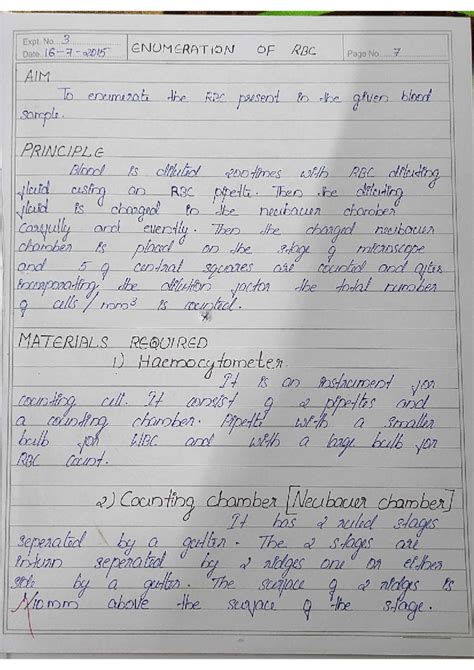 Expt. No. 3
Date 16-7-2015
ENUMERATION OF RBC
Page No. 7
AIM
To enumerate the RBC present in the given blood
sample.
PRINCIPLE
Blood is diluted 200 times with RBC diluting
fluid using an RBC pipette. Then the diluting
fluid is charged in the neubauer chamber
carefully and evently. Then the charged neubauer
chamber is placed on the stage of microscope
and 5 of central squares are counted and after
incorporating the dilution factor the total number
of cells / mm³ is counted.
MATERIALS REQUIRED
1) Haemocytometer.
It is an instrument for
counting cell. It consist of 2 pipettes and
a counting chamber. Pipette with a smaller
bulb for WBC and with a large bulb for
RBC count.
2) Counting chamber [Neubauer chamber]
It has 2 ruled stages
seperated by a gutter. The 2 stages are
inturn seperated by 2 ridges one on either
side by a gutter. The surface of 2 ridges is
1/10mm above the surface of the stage.